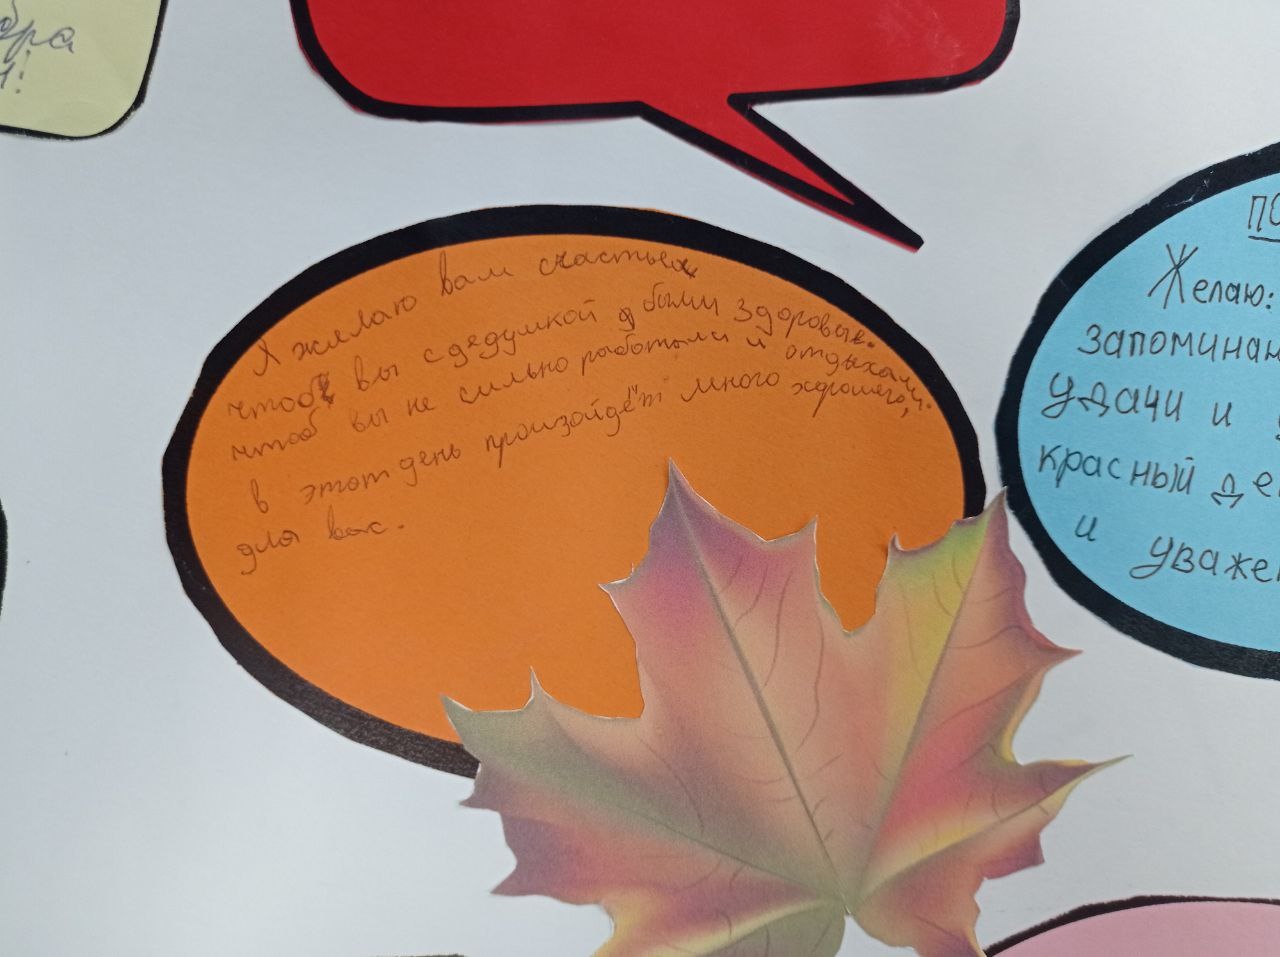 Я желаю вам счастья,
чтоб вы с дедушкой были здоровы.
чтоб вы не сильно работали и отдыхали.
в этот день произойдёт много хорошего,
для вас.
Желаю:
удачи и
красный
и